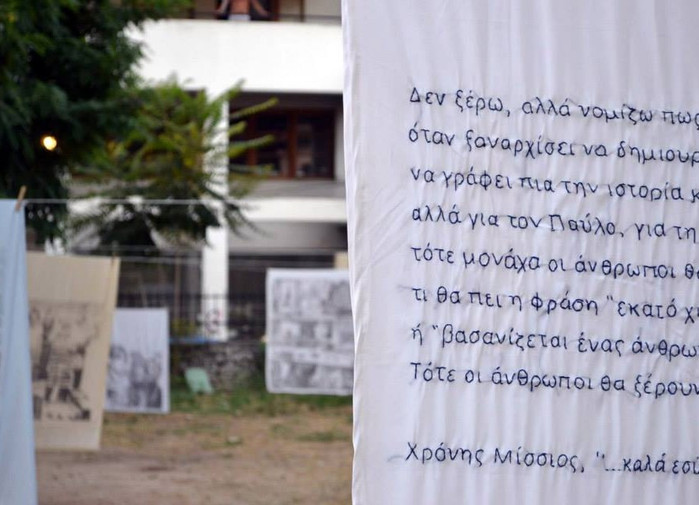 Δεν ξέρω, αλλά νομίζω πως
όταν ξαναρχίσει να δημιουρ
να γράφει πια την ιστορία κ
αλλά για τον Παύλο, για τη
τότε μονάχα οι άνθρωποι θα
τι θα πει η φράση "εκατό χι
ή "βασανίζεται ένας άνθρω
Τότε οι άνθρωποι θα ξέρουν
Χρόνης Μίσσιος, "...καλά εσύ